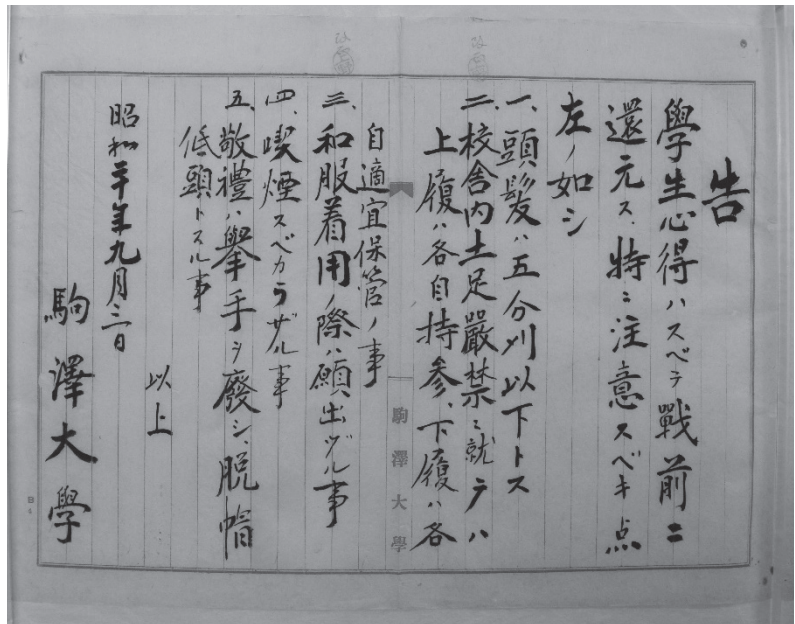 告
學生心得ハスベテ戰前ニ
還元ス、特ニ注意スベキ点
左ノ如シ
一、頭髮ハ五分刈以下トス
二、校舎内土足嚴禁ニ就テハ
上履ハ各自持参、下履ハ各
自適宜保管ノ事
三、和服着用ノ際ハ願出ヅル事
四、喫煙スベカラザル事
五、敬禮ハ擧手ヲ廢シ、脱帽
低頭トスル事
以上
昭和二十年九月三日
駒澤大學
駒澤大學